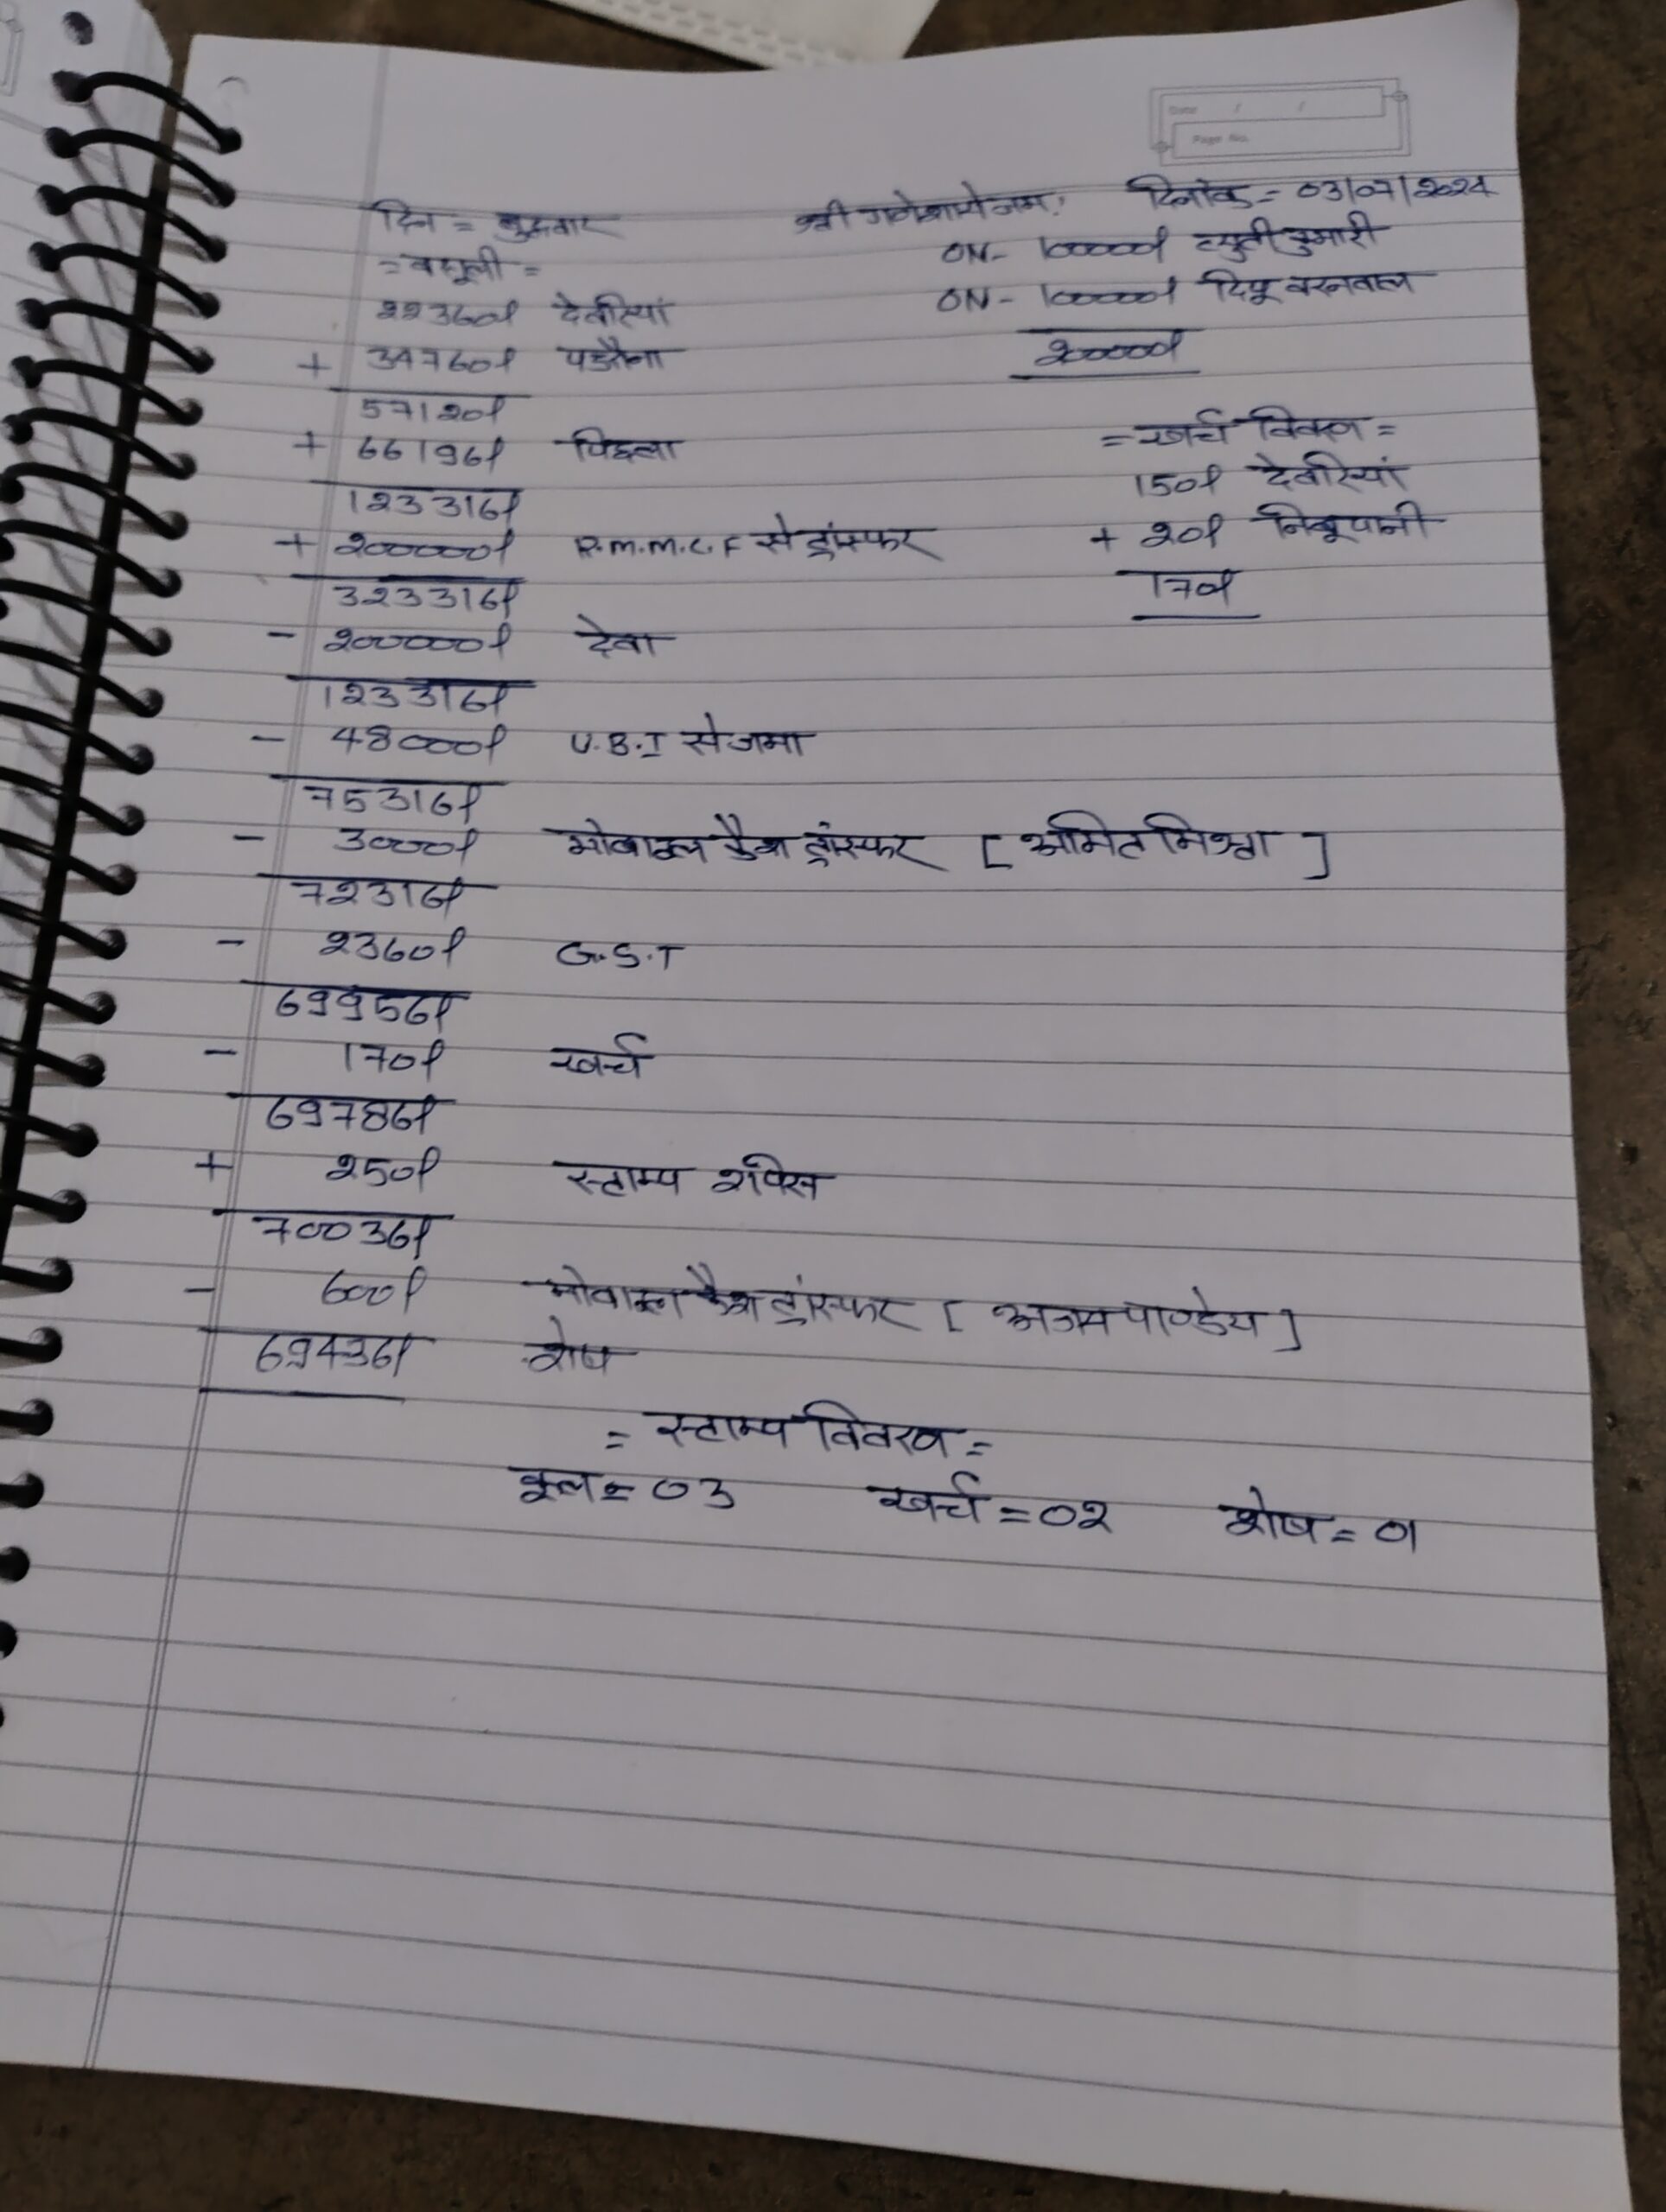 Date / /
Page No.
दिन = बुद्धवार श्री गणेशाये नमः दिनांक = 03/07/2024
= वसूली = ON - 100000/ ज्युती कुमारी
22360/ देवरियां ON - 100000/ दिपू बरनवाल
+ 34760/ पडरौना 200000/
57120/
+ 66196/ पिछला = खर्च विवरण =
123316/ 150/ देवरियां
+ 200000/ R.M.M.C.F से ट्रांस्फर + 20/ निबूपानी
323316/ 170/
- 200000/ देवा
123316/
- 48000/ U.B.I से जमा
75316/
- 3000/ मोबाइल कैश ट्रांस्फर [ अमित मिश्रा ]
72316/
- 2360/ G.S.T
69956/
- 170/ खर्च
69786/
+ 250/ स्टाम्प
70036/
- 600/ मोबाइल कैश ट्रांस्फर [ अजय पाण्डेय ]
69436/ शेष
= स्टाम्प विवरण =
कुल = 03 खर्च = 02 शेष = 01